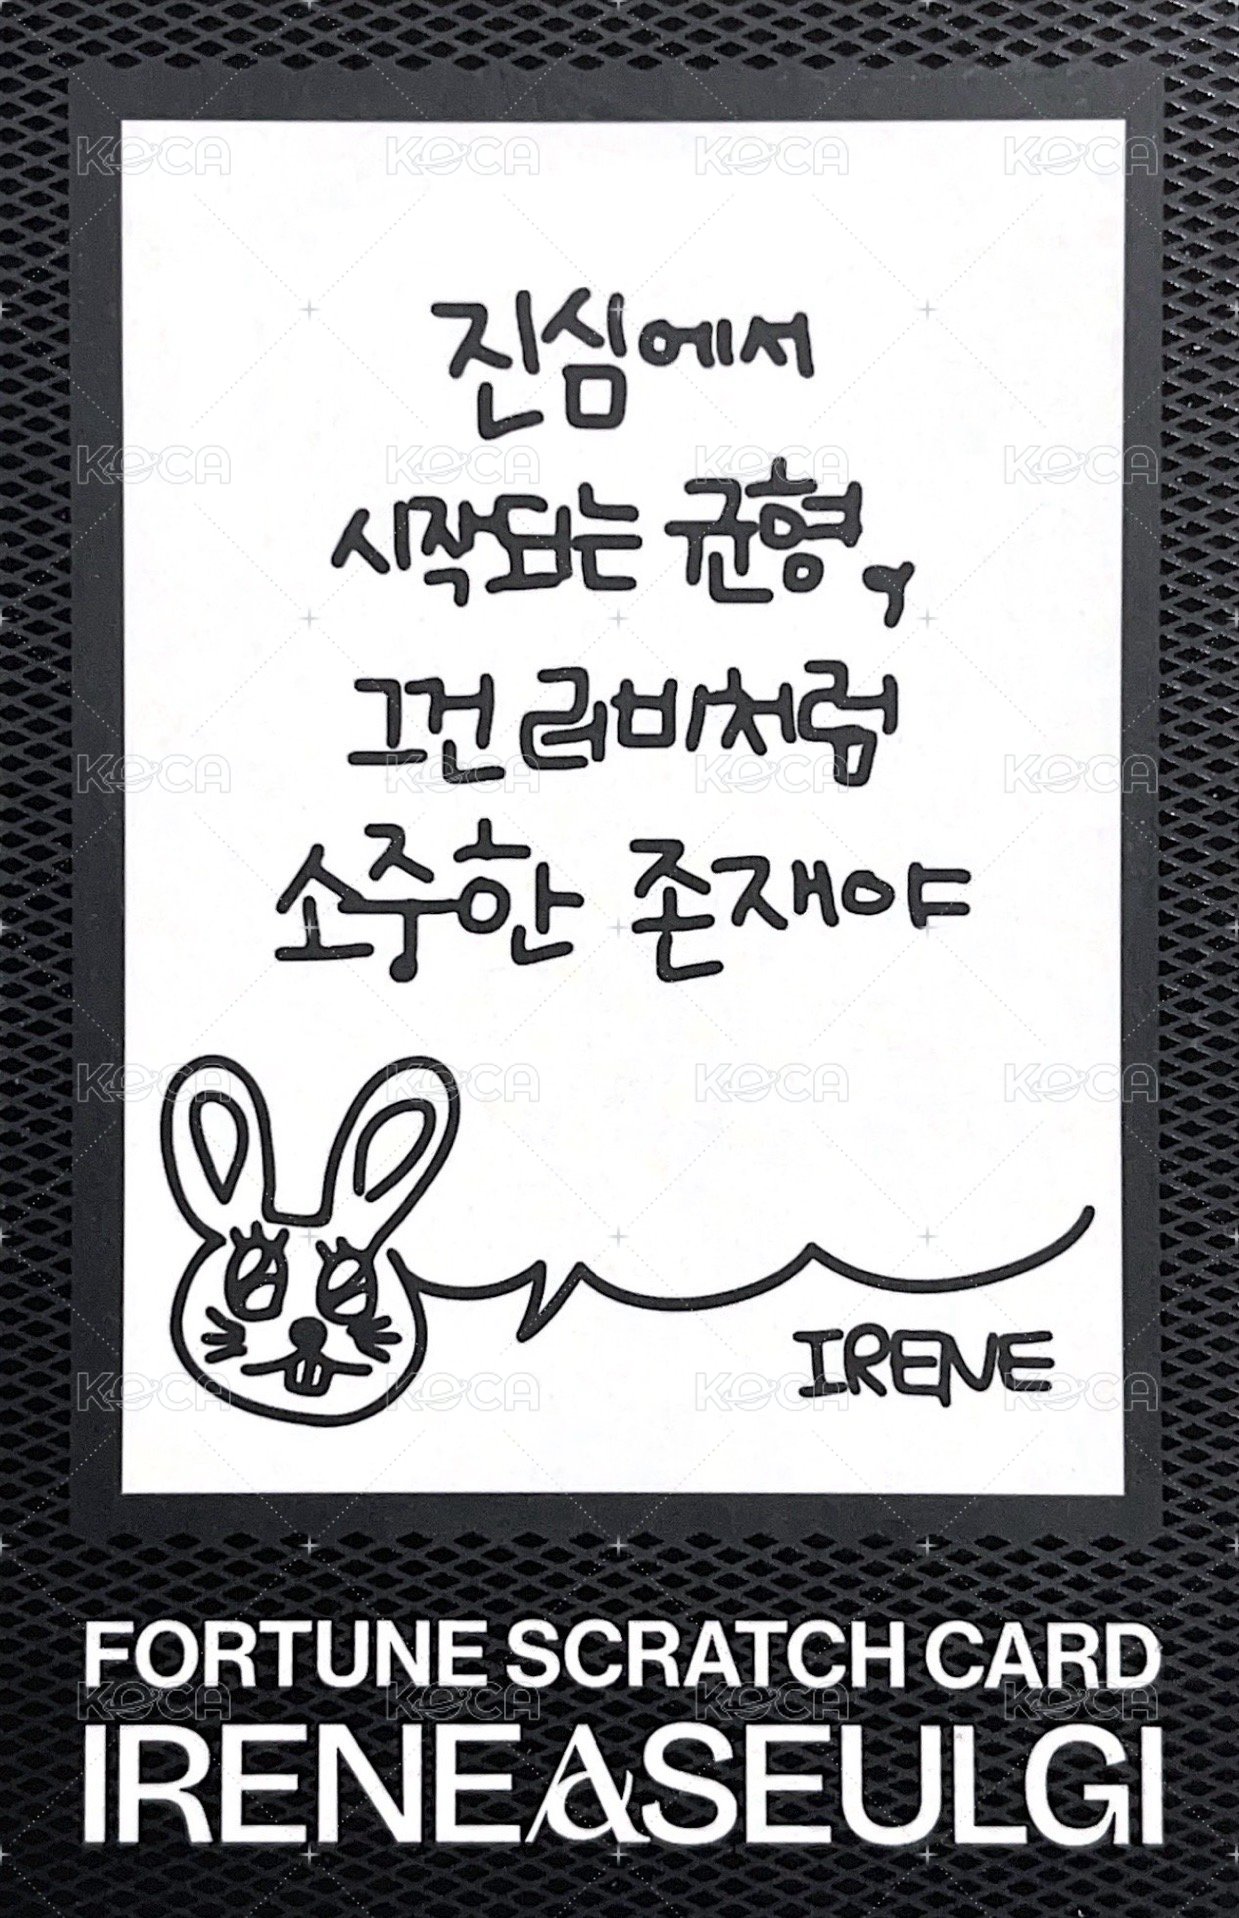 진심에서
시작되는 균형,
그건 러비처럼
소중한 존재야
IRENE
FORTUNE SCRATCH CARD
IRENE&SEULGI
KOCA